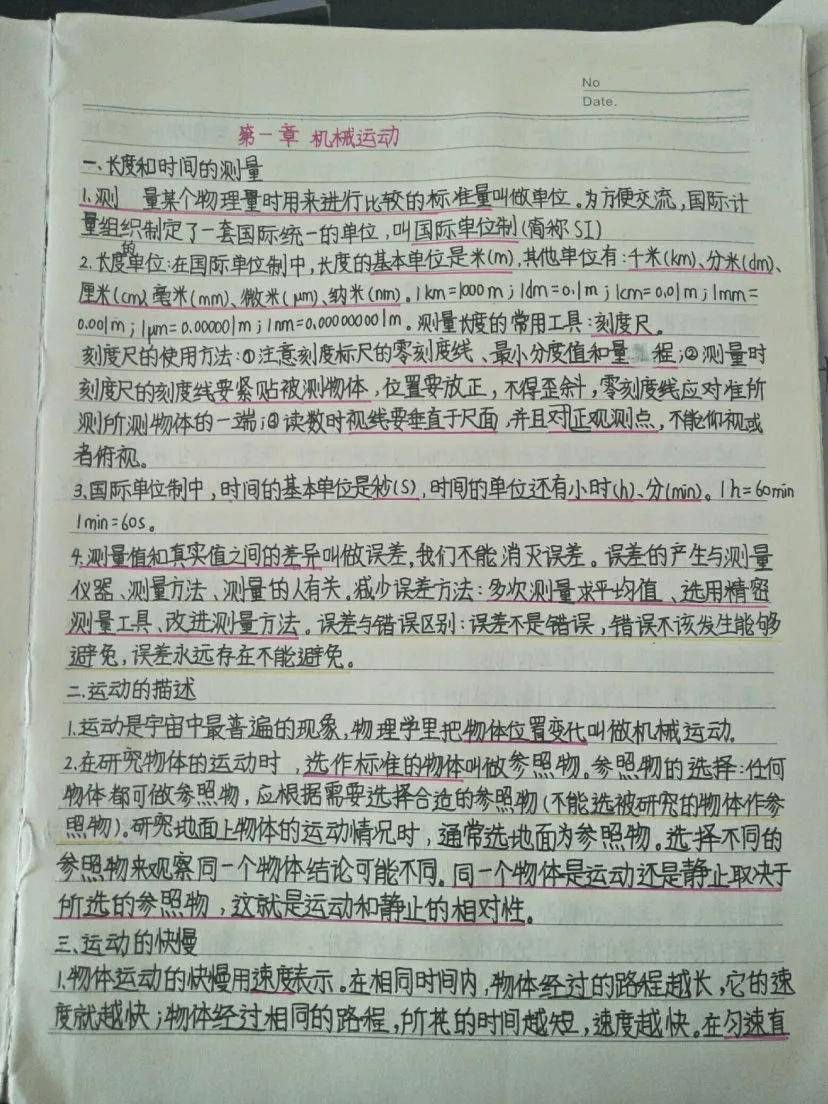 No
Date.
第一章 机械运动
一、长度和时间的测量
1.测 量某个物理量时用来进行比较的标准量叫做单位。为方便交流,国际计
量组织制定了一套国际统一的单位,叫国际单位制(简称SI)
2.长度的单位:在国际单位制中,长度的基本单位是米(m),其他单位有:千米(km)、分米(dm)、
厘米(cm)、毫米(mm)、微米(μm)、纳米(nm)。1km=1000m;1dm=0.1m;1cm=0.01m;1mm=
0.001m;1μm=0.000001m;1nm=0.000000001m。测量长度的常用工具:刻度尺。
刻度尺的使用方法:①注意刻度标尺的零刻度线、最小分度值和量 程;②测量时
刻度尺的刻度线要紧贴被测物体,位置要放正,不得歪斜,零刻度线应对准所
测所测物体的一端;③读数时视线要垂直于尺面,并且对正观测点,不能仰视或
者俯视。
3.国际单位制中,时间的基本单位是秒(S),时间的单位还有小时(h)、分(min)。1h=60min
1min=60s。
4.测量值和真实值之间的差异叫做误差,我们不能消灭误差。误差的产生与测量
仪器、测量方法、测量的人有关。减少误差方法:多次测量求平均值、选用精密
测量工具、改进测量方法。误差与错误区别:误差不是错误,错误不该发生能够
避免,误差永远存在不能避免。
二.运动的描述
1.运动是宇宙中最普遍的现象,物理学里把物体位置变化叫做机械运动。
2.在研究物体的运动时,选作标准的物体叫做参照物。参照物的选择:任何
物体都可做参照物,应根据需要选择合适的参照物(不能选被研究的物体作参
照物)。研究地面上物体的运动情况时,通常选地面为参照物。选择不同的
参照物来观察同一个物体结论可能不同。同一个物体是运动还是静止取决于
所选的参照物,这就是运动和静止的相对性。
三.运动的快慢
1.物体运动的快慢用速度表示。在相同时间内,物体经过的路程越长,它的速
度就越快;物体经过相同的路程,所花的时间越短,速度越快。在匀速直